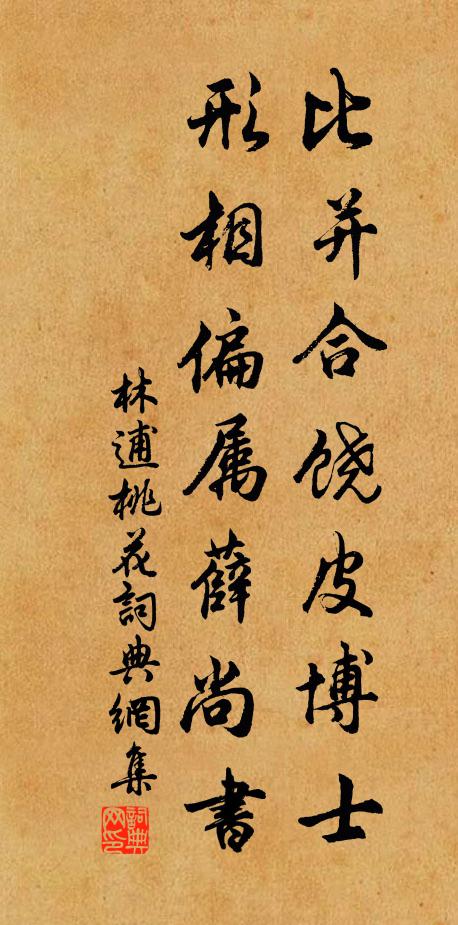 比并合饶皮博士
形相偏属薛尚书
林逋桃花詞典網集
詞典网印